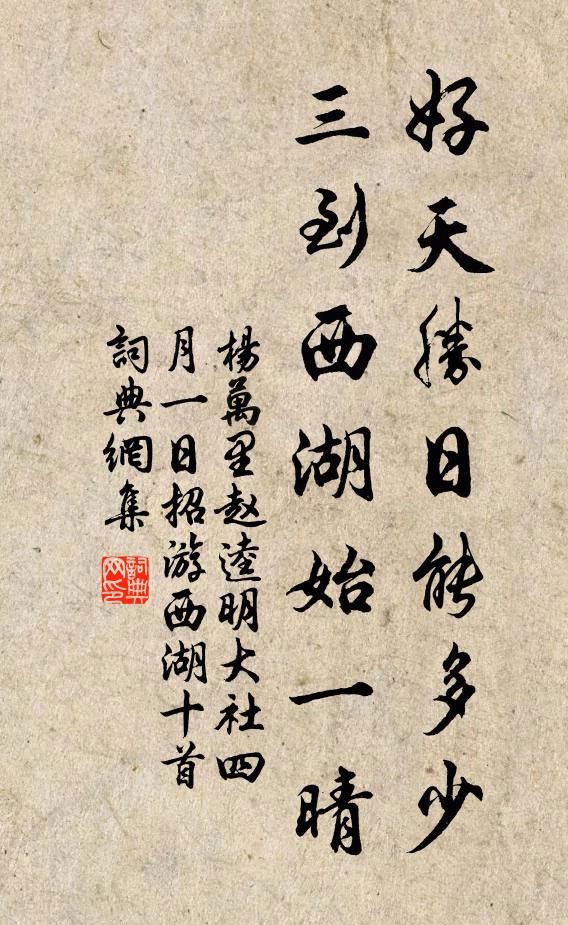 好天勝日能多少
三到西湖始一晴
楊萬里赵逵明大社四
月一日招游西湖十首
詞典網集
詞典
网印